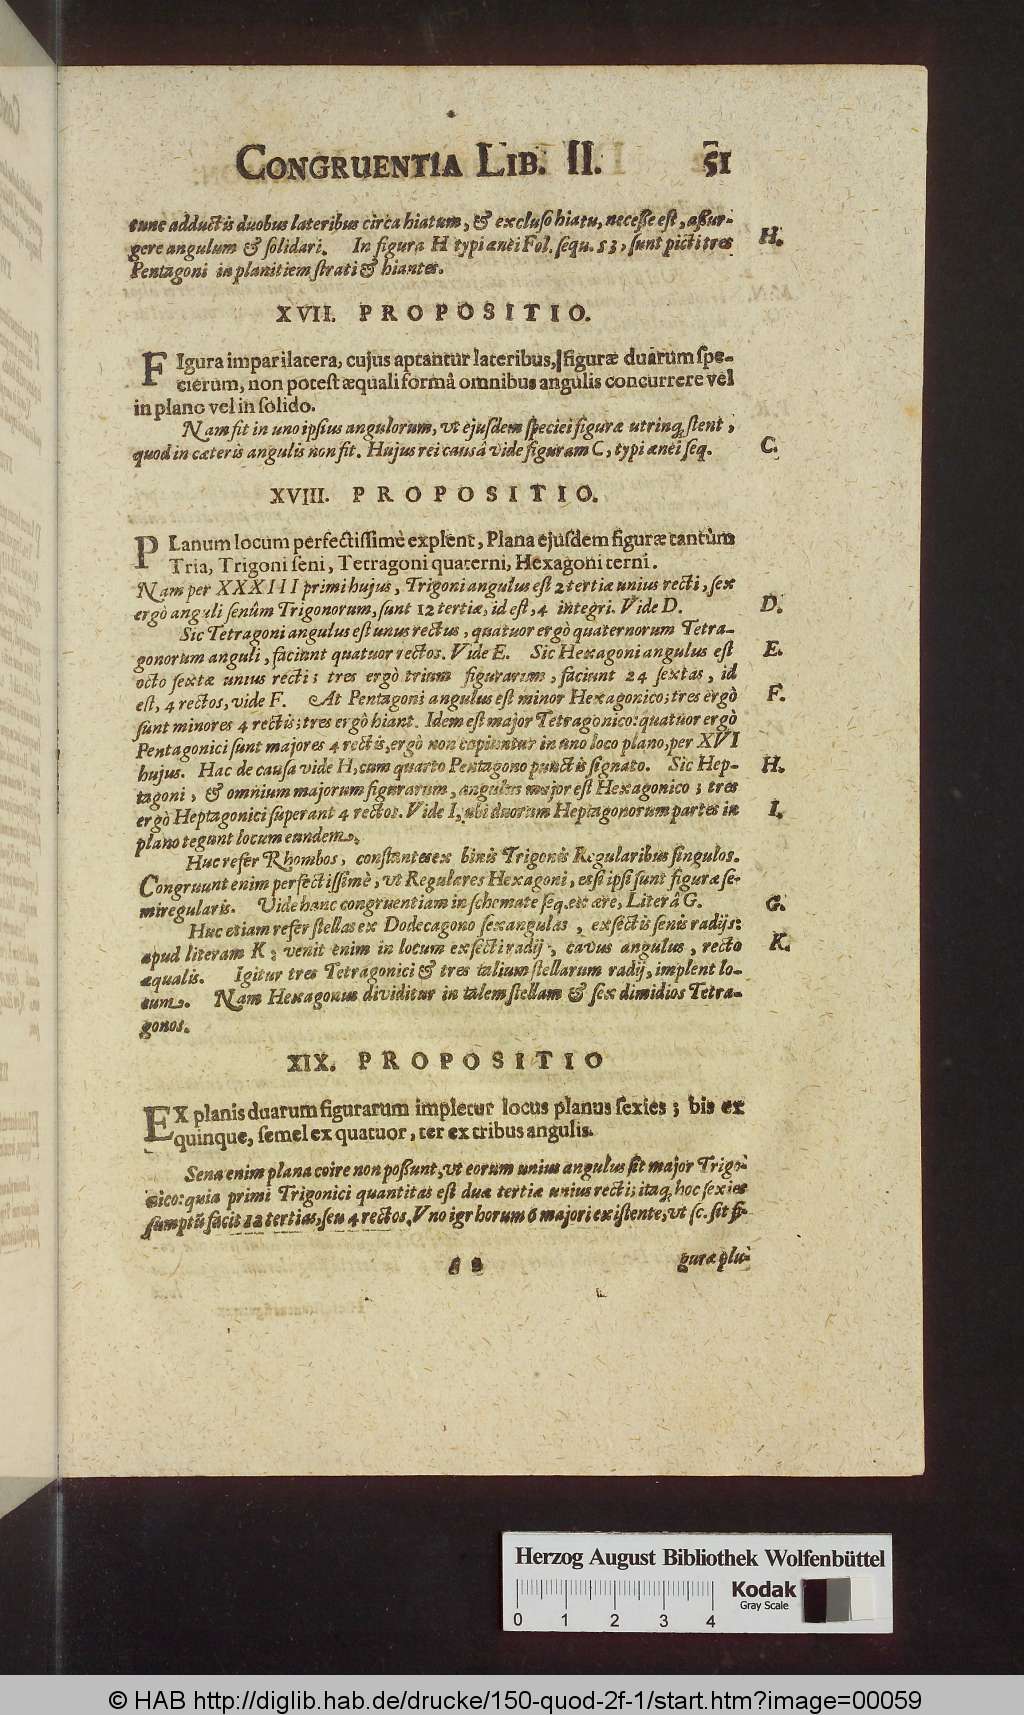 CONGRUENTIA LIB. II. 51
tunc adductis duobus lateribus circa hiatum, & excluso hiatu, necesse est, assur-
gere angulum & solidari. In figura H typi ænei Fol. sequ. 53, sunt picti tres H.
Pentagoni in planitiem strati & hiantes.
XVII. PROPOSITIO.
FIgura imparilatera, cujus aptantur lateribus, figuræ duarum spe-
cierum, non potest æquali formâ omnibus angulis concurrere vel
in plano vel in solido.
Nam fit in uno ipsius angulorum, ut ejusdem speciei figuræ utrinq; stent,
quod in cæteris angulis non fit. Hujus rei causâ vide figuram C, typi ænei seq. C.
XVIII. PROPOSITIO.
PLanum locum perfectissimè explent, Plana ejusdem figuræ tantùm
Tria, Trigoni seni, Tetragoni quaterni, Hexagoni terni.
Nam per XXXIII primi hujus, Trigoni angulus est 2 tertiæ unius recti, sex
ergò anguli senûm Trigonorum, sunt 12 tertiæ, id est, 4 integri. Vide D. D.
Sic Tetragoni angulus est unus rectus, quatuor ergò quaternorum Tetra-
gonorum anguli, faciunt quatuor rectos. Vide E. Sic Hexagoni angulus est E.
octo sextæ unius recti; tres ergò trium figurarum, faciunt 24 sextas, id
est, 4 rectos, vide F. At Pentagoni angulus est minor Hexagonico; tres ergò F.
sunt minores 4 rectis; tres ergò hiant. Idem est major Tetragonico: quatuor ergò
Pentagonici sunt majores 4 rectis, ergò non capiuntur in uno loco plano, per XVI
hujus. Hac de causa vide H, cum quarto Pentagono punctis signato. Sic Hep- H.
tagoni, & omnium majorum figurarum, angulus major est Hexagonico; tres
ergò Heptagonici superant 4 rectos. Vide I, ubi duorum Heptagonorum partes in I.
plano tegunt locum eundem.
Huc refer Rhombos, constantes ex binis Trigonis Regularibus singulos.
Congruunt enim perfectissimè, ut Regulares Hexagoni, etsi ipsi sunt figuræ se-
miregularis. Vide hanc congruentiam in schemate seq. ex ære, Literâ G. G.
Huc etiam refer stellas ex Dodecagono sexangulas, exsectis senis radijs:
apud literam K; venit enim in locum exsecti radij, cavus angulus, recto K.
æqualis. Igitur tres Tetragonici & tres talium stellarum radij, implent lo-
cum. Nam Hexagonus dividitur in talem stellam & sex dimidios Tetra-
gonos.
XIX. PROPOSITIO
EX planis duarum figurarum impletur locus planus sexies; bis ex
quinque, semel ex quatuor, ter ex tribus angulis.
Sena enim plana coire non possunt, ut eorum unius angulus sit major Trigo-
nico: quia primi Trigonici quantitas est duæ tertiæ unius recti; itaq; hoc sexies
sumptũ facit 12 tertias, seu 4 rectos. Uno igr horum 6 majori existente, ut sc. sit fi-
guræ plu-
Herzog August Bibliothek Wolfenbüttel
0 1 2 3 4
Kodak
Gray Scale
© HAB http://diglib.hab.de/drucke/150-quod-2f-1/start.htm?image=00059